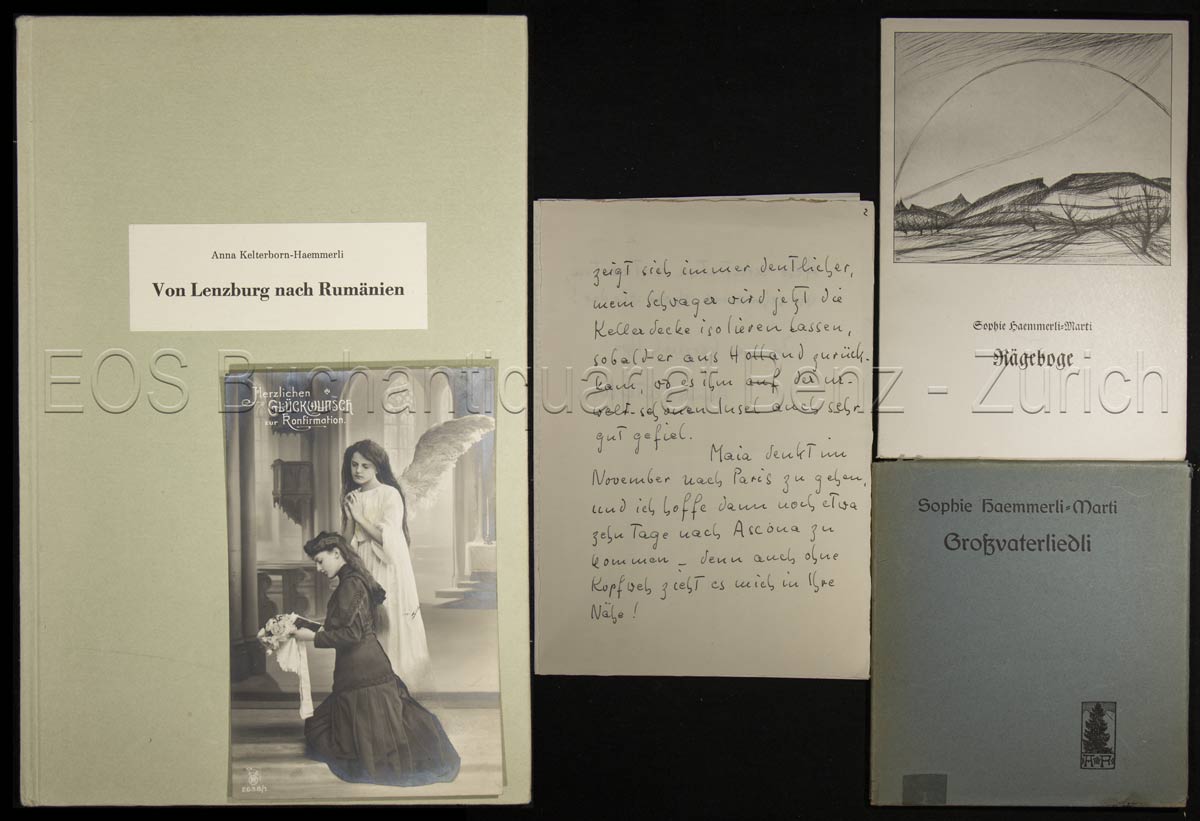 Anna Kelterborn-Haemmerli
Von Lenzburg nach Rumänien
Herzlichen
GLÜCKWUNSCH
zur Konfirmation.
2
zeigt sich immer deutlicher,
mein Schwager wird jetzt die
Kellerdecke isolieren lassen,
sobald er aus Holland zurück-
kam, wo es ihm auf der ur-
welt-schönen Insel auch sehr
gut gefiel.
Maia denkt im
November nach Paris zu gehen,
und ich hoffe dann noch etwa
zehn Tage nach Ascona zu
kommen – denn auch ohne
Kopfweh zieht es mich in Ihre
Nähe!
Sophie Haemmerli-Marti
Rägeboge
Sophie Haemmerli-Marti
Großvaterliedli
EOS Buchantiquariat Benz - Zürich